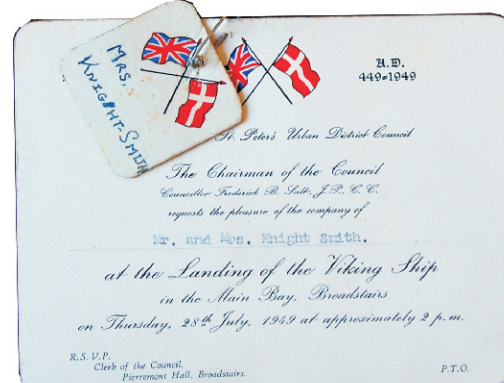 MRS.
KNIGHT-SMITH
A.D.
449-1949
St. Peter's Urban District Council
The Chairman of the Council
Councillor Frederick B. Salt, J.P., C.C.
requests the pleasure of the company of
Mr. and Mrs. Knight Smith.
at the Landing of the Viking Ship
in the Main Bay, Broadstairs
on Thursday, 28th July, 1949 at approximately 2 p.m.
R.S.V.P.
Clerk of the Council,
Pierremont Hall, Broadstairs.
P.T.O.